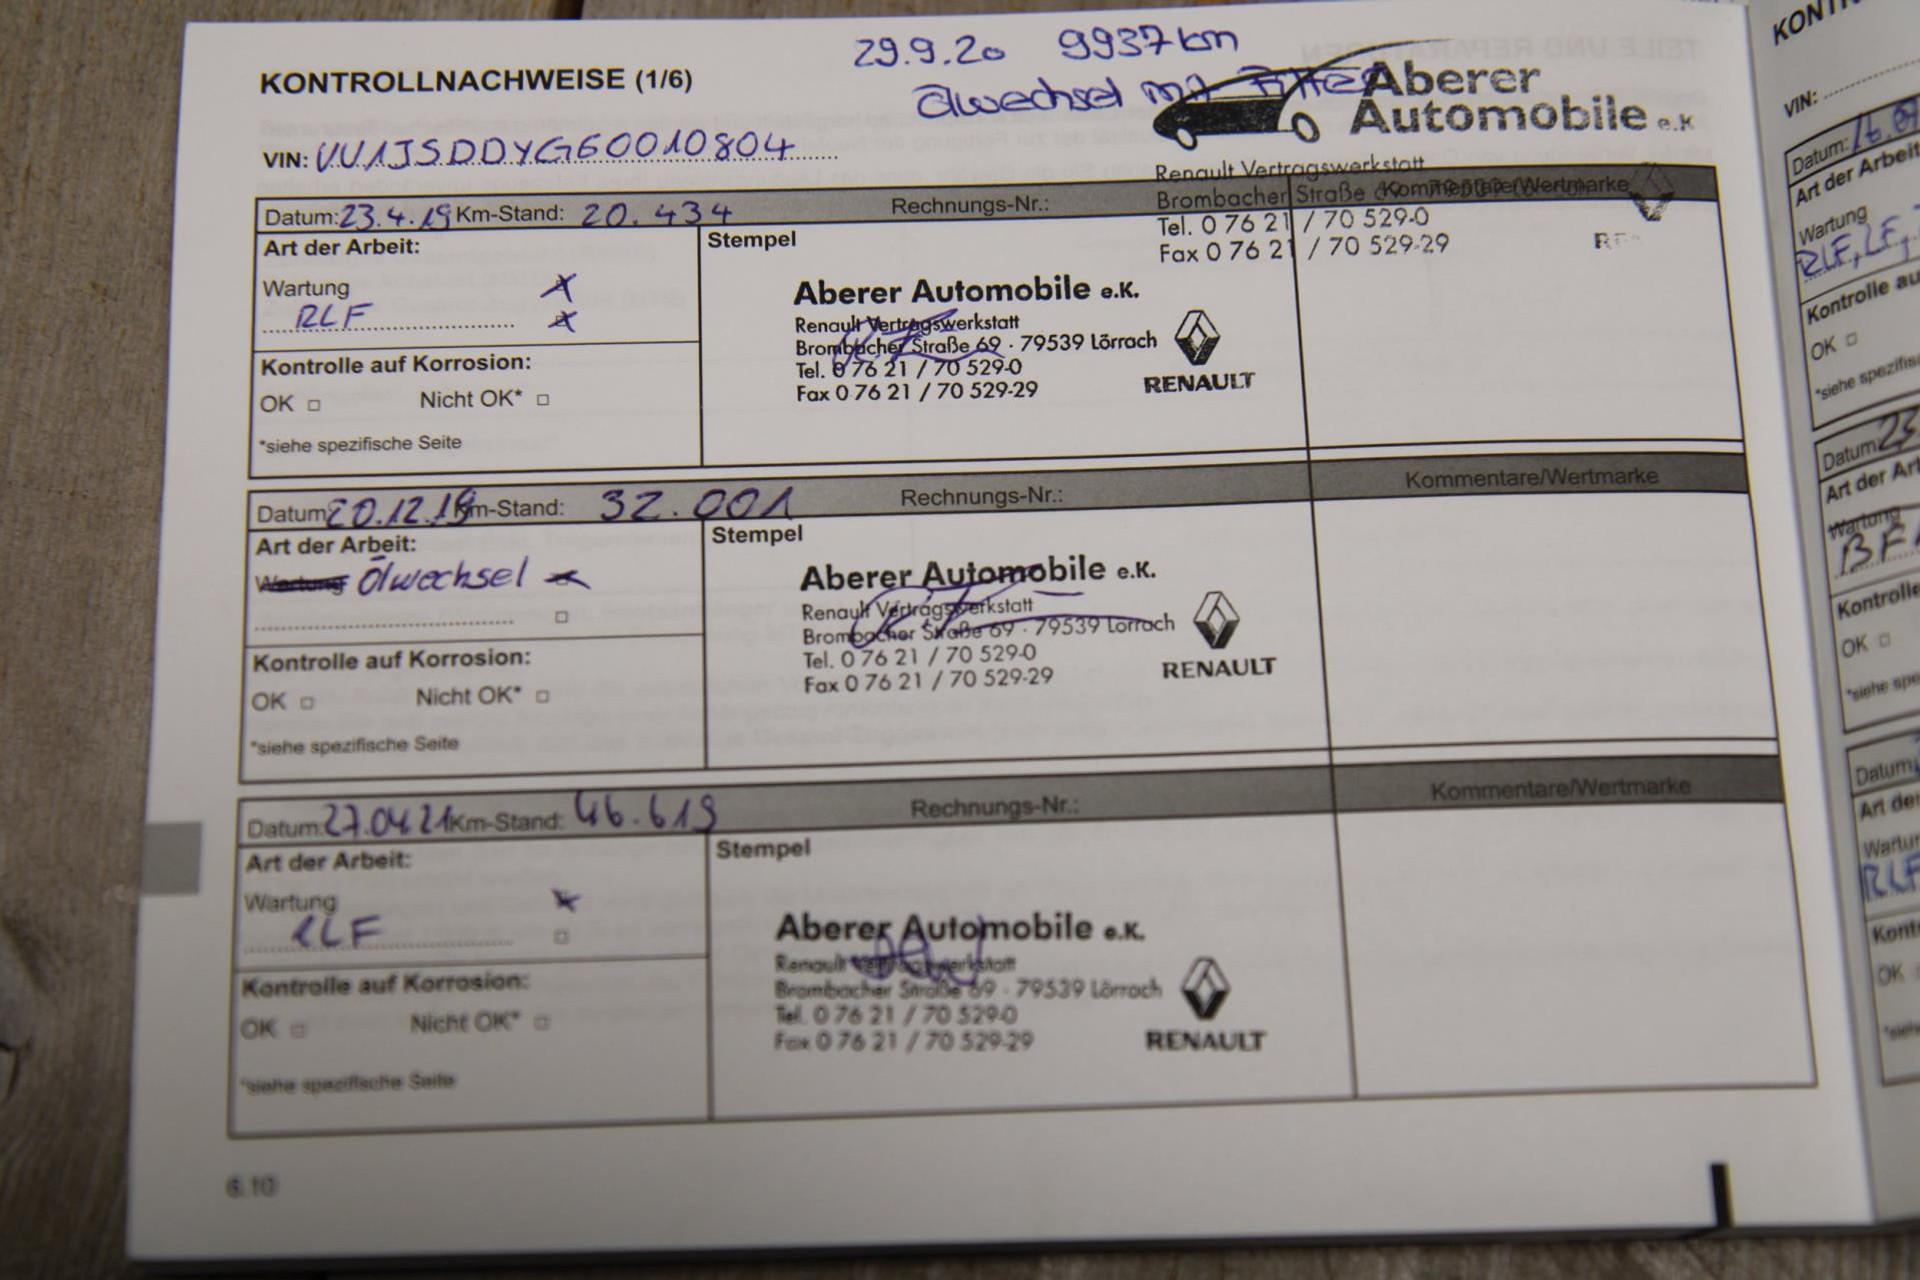 29.9.20 9937 km
Ölwechsel mit Filter
KONTROLLNACHWEISE (1/6)
Aberer
Automobile e.K
VIN: VU1JSDDYG60010804
Renault Vertragswerkstatt
Brombacher Straße 69
Tel. 0 76 21 / 70 529-0
Fax 0 76 21 / 70 529-29
Datum: 23.4.19 Km-Stand: 20.434 Rechnungs-Nr.: Kommentare/Wertmarke
Art der Arbeit:
Wartung X
RLF X
Kontrolle auf Korrosion:
OK □ Nicht OK* □
*siehe spezifische Seite
Stempel
Aberer Automobile e.K.
Renault Vertragswerkstatt
Brombacher Straße 69 · 79539 Lörrach
Tel. 0 76 21 / 70 529-0
Fax 0 76 21 / 70 529-29
RENAULT
Datum: 20.12.19 Km-Stand: 32.001 Rechnungs-Nr.: Kommentare/Wertmarke
Art der Arbeit:
Wartung Ölwechsel X
Kontrolle auf Korrosion:
OK □ Nicht OK* □
*siehe spezifische Seite
Stempel
Aberer Automobile e.K.
Renault Vertragswerkstatt
Brombacher Straße 69 · 79539 Lörrach
Tel. 0 76 21 / 70 529-0
Fax 0 76 21 / 70 529-29
RENAULT
Datum: 27.04.21 Km-Stand: 46.619 Rechnungs-Nr.: Kommentare/Wertmarke
Art der Arbeit:
Wartung X
RLF □
Kontrolle auf Korrosion:
OK □ Nicht OK* □
*siehe spezifische Seite
Stempel
Aberer Automobile e.K.
Renault Vertragswerkstatt
Brombacher Straße 69 · 79539 Lörrach
Tel. 0 76 21 / 70 529-0
Fax 0 76 21 / 70 529-29
RENAULT
6.10
VIN:
Datum:
Art der Arbeit
Wartung
RLF, LF,
Kontrolle au
OK □
*siehe spezifis
Datum:
Art der Ar
Wartung
Kontrolle
OK □
*siehe spe
Datum:
Art der
RLF
OK